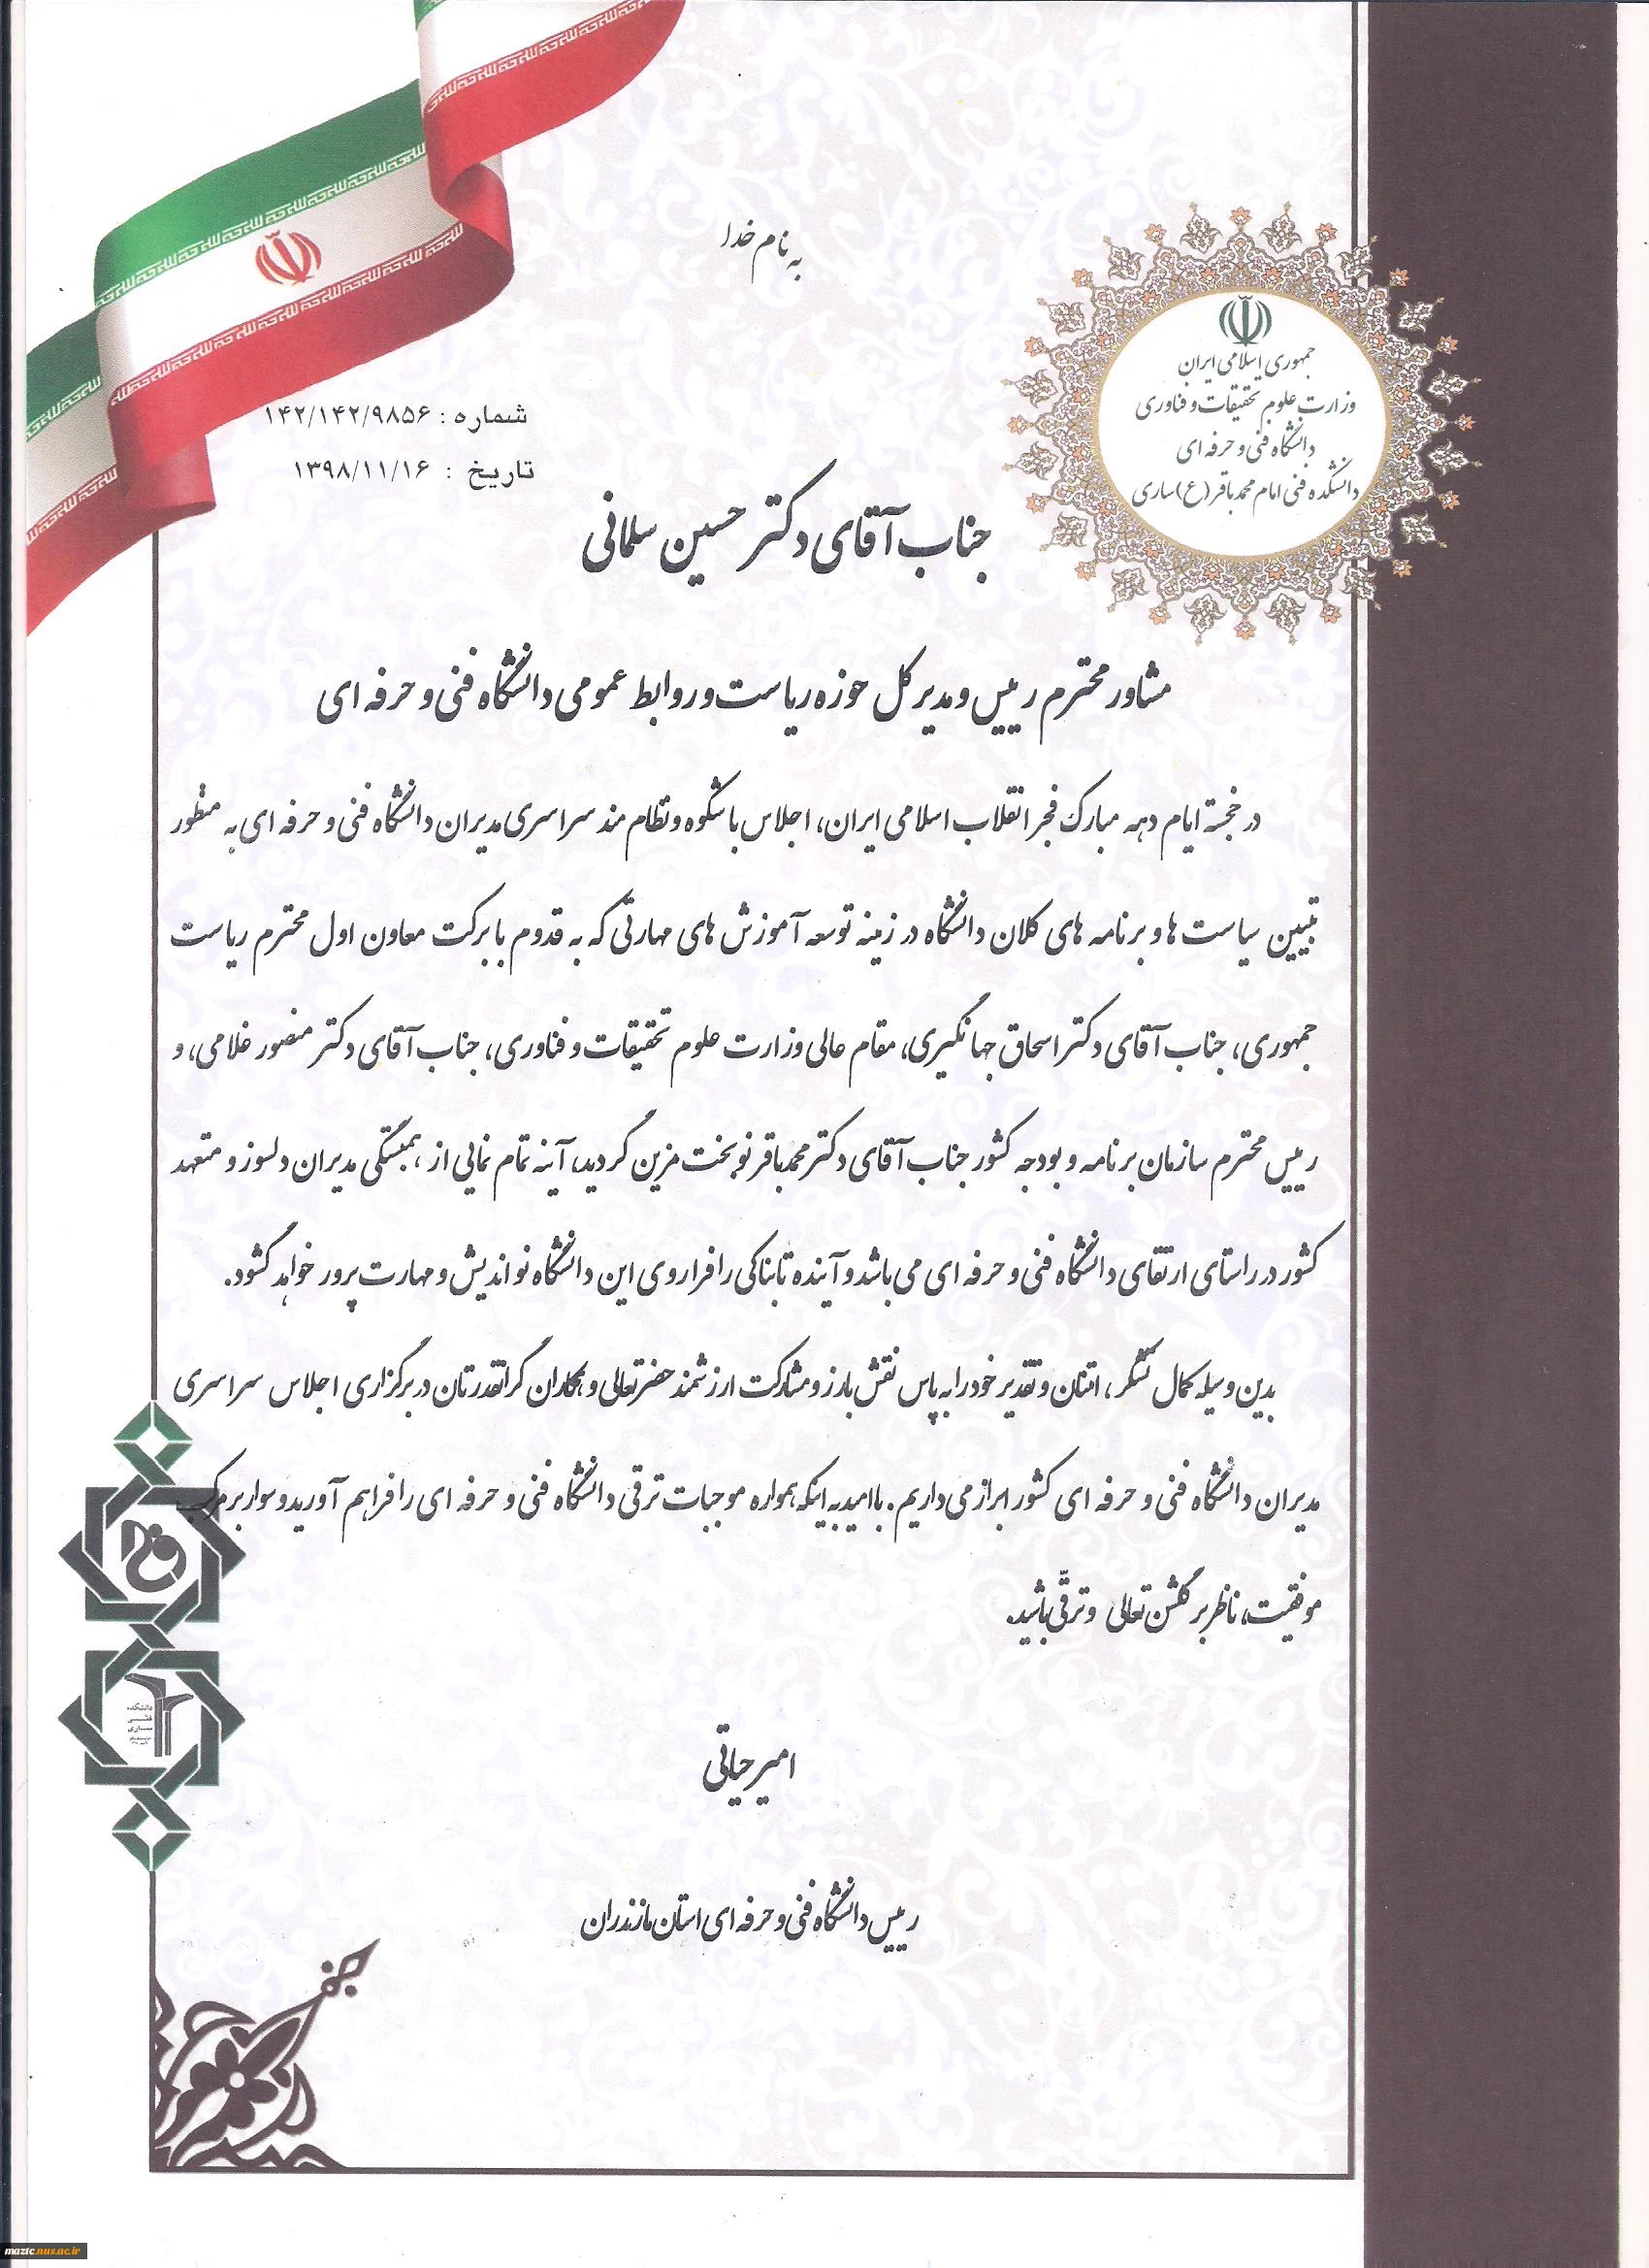 به نام خدا
جمهوری اسلامی ایران
وزارت علوم تحقیقات و فناوری
دانشگاه فنی و حرفه ای
دانشکده فنی امام محمد باقر (ع) ساری
شماره : ۱۴۲/۱۴۲/۹۸۵۶
تاریخ : ۱۳۹۸/۱۱/۱۶
جناب آقای دکتر حسین سلمانی
مشاور محترم رییس و مدیر کل حوزه ریاست و روابط عمومی دانشگاه فنی و حرفه ای
در خجسته ایام دهه مبارک فجر انقلاب اسلامی ایران، اجلاس باشکوه و نظام مند سراسری مدیران دانشگاه فنی و حرفه ای به منظور
تبیین سیاست ها و برنامه های کلان دانشگاه در زمینه توسعه آموزش های مهارتی که به قدوم با برکت معاون اول محترم ریاست
جمهوری، جناب آقای دکتر اسحاق جهانگیری، مقام عالی وزارت علوم تحقیقات و فناوری، جناب آقای دکتر منصور غلامی، و
رییس محترم سازمان برنامه و بودجه کشور جناب آقای دکتر محمدباقر نوبخت مزین گردید، آینه تمام نمایی از همبستگی مدیران دلسوز و متعهد
کشور در راستای ارتقای دانشگاه فنی و حرفه ای می باشد و آینده تابناکی را فراروی این دانشگاه نو اندیش و مهارت پرور خواهد گشود.
بدین وسیله کمال تشکر، امتنان و تقدیر خود را به پاس نقش بارز و مشارکت ارزشمند حضرتعالی و همکاران گرانقدرتان در برگزاری اجلاس سراسری
مدیران دانشگاه فنی و حرفه ای کشور ابراز می داریم. با امید به اینکه همواره موجبات ترقی دانشگاه فنی و حرفه ای را فراهم آورید و سوار بر مرکب
موفقیت، ناظر بر گلشن تعالی و ترقّی باشید.
امیر حیاتی
رییس دانشگاه فنی و حرفه ای استان مازندران
maztc.nus.ac.ir